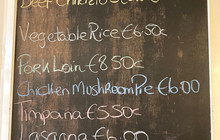 Beef
Vegetable Rice €6.50c
Pork Loin €8.50c
Chicken MushRoom Pie €6.00
Timpana €5.50c
Lasagna €6.00